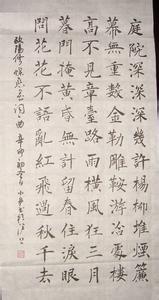 庭院深深深幾許楊柳堆煙簾
幕無重數金勒雕鞍游冶處樓
高不見章臺路雨橫風狂三月
暮門掩黄昏無計留春住淚眼
問花花不語亂紅飛過秋千去
歐陽修蝶恋花詞一曲辛卯初冬小